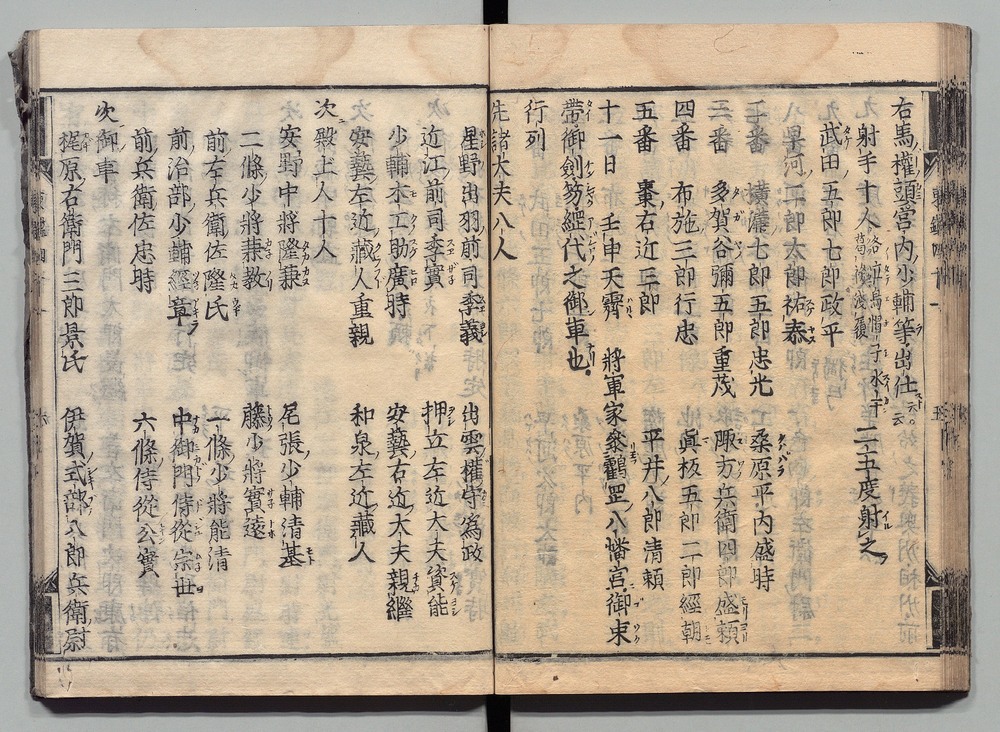 右馬權頭宮内少輔等出仕云云
射手十人 立烏帽子水干 二五度射之
武田五郎七郎政平
早河二郎太郎祐泰
二番 横溝七郎五郎忠光 桑原平内盛時
三番 多賀谷彌五郎重茂 諏方兵衛四郎盛頼
四番 布施三郎行忠 眞板五郎二郎經朝
五番 棗右近三郎 平井八郎清頼
十一日 壬申天霽 將軍家參鶴罡八幡宮御束
帶御劍笏經代之御車也
行列
先諸大夫八人
星野出羽前司季義 出雲權守爲政
近江前司季實 押立左近大夫資能
少輔木工助廣時 安藝右近大夫親繼
安藝左近藏人重親 和泉左近藏人
次殿上人十人
安野中將隆兼 尾張少輔清基
二條少將兼教 藤少將實遠
前左兵衛佐隆氏 一條少將能清
前治部少輔經章 中御門侍從宗世
前兵衛佐忠時 六條侍從公實
次御車
梶原右衛門三郎景氏 伊賀式部八郎兵衛尉